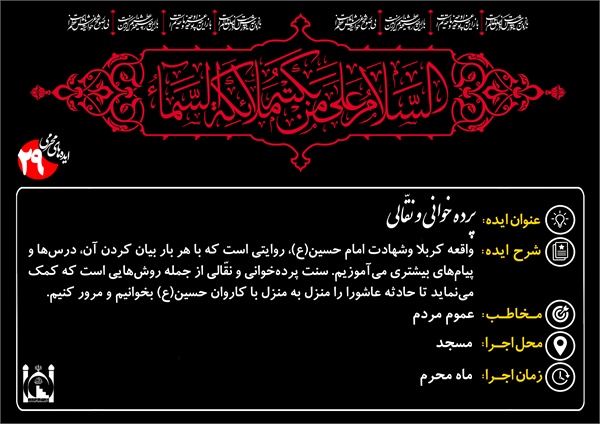 السَّلامُ عَلی مَن بَکَتهُ مَلائِکَةُ السَّماءِ
ایده‌های محرمی
۲۹
عنوان ایده: پرده خوانی و نقّالی
شرح ایده: واقعه کربلا وشهادت امام حسین(ع)، روایتی است که با هر بار بیان کردن آن، درس‌ها و
پیام‌های بیشتری می‌آموزیم. سنت پرده‌خوانی و نقالی از جمله روش‌هایی است که کمک
می‌نماید تا حادثه عاشورا را منزل به منزل با کاروان حسین(ع) بخوانیم و مرور کنیم.
مـخاطـب: عموم مردم
محل اجـرا: مسجد
زمان اجرا: ماه محرم